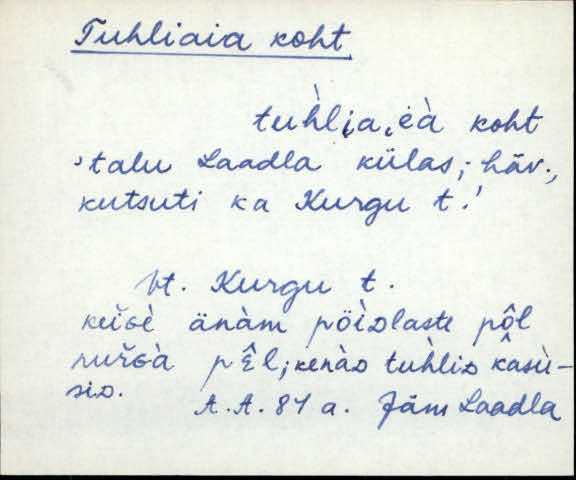 Tuhliaia koht
tuh̀lia,eà koht
'talu Laadla külas; häv.,
kutsuti ka Kurgu t.'
Vt. Kurgu t.
änàm pöìᴅlaste pô̭l
tuh̀liᴅ kasù-
siᴅ.
A. A. 81 a. Jäm Laadla